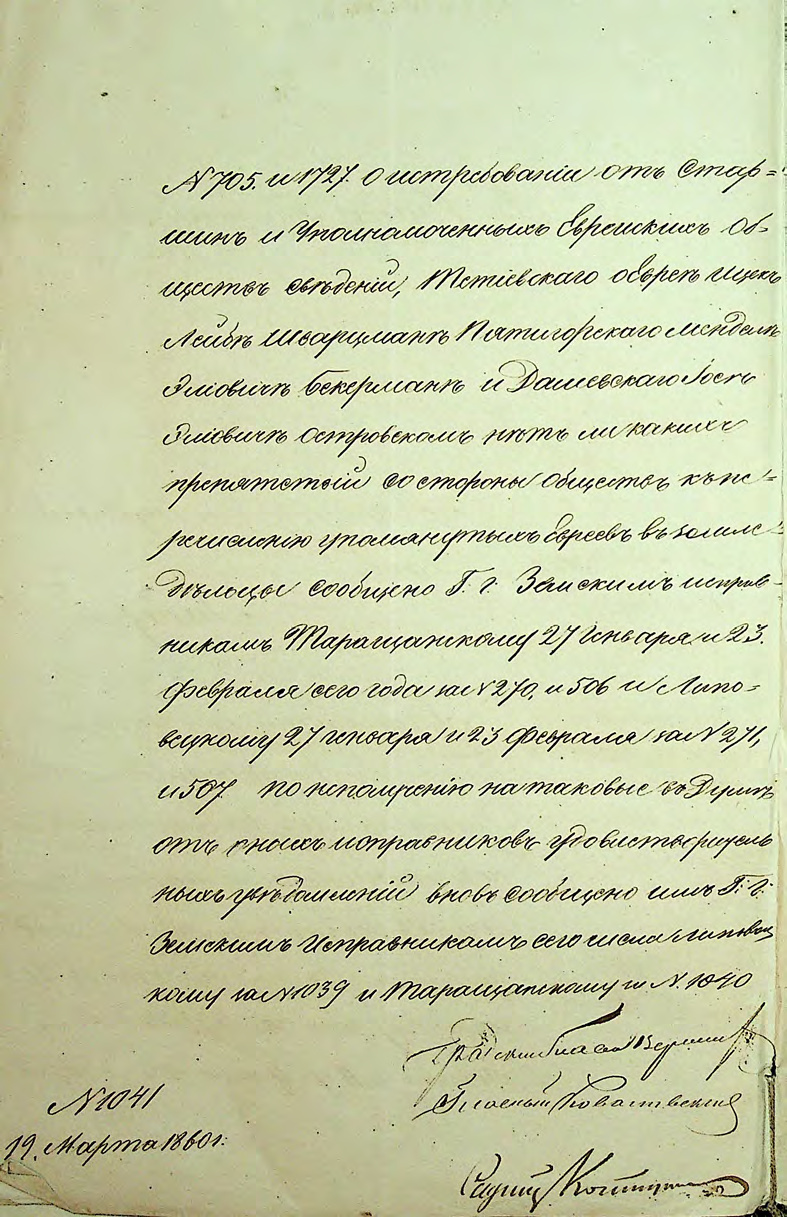 № 705. и 1727. О истребованіи отъ Стар=
шинъ и Уполномоченныхъ Еврейскихъ Об-
ществъ свѣденій, Тетіевскаго о Евреѣ Ицекъ
Лейбѣ Шварцманѣ Пятигорскаго Менделѣ
Эліовичѣ Бекерманѣ и Дашевскаго Іосѣ
Эліовичѣ Островскомъ нѣтъ ли какихъ
препятствій со стороны обществъ къ пе=
речисленію упомянутыхъ Евреевъ въ Земле=
дѣльцы сообщено Г. г. Земскимъ исправ-
никамъ Таращанскому 27 Генваря и 23.
Февраля сего года за № 270, и 506 и Липо=
вецкому 27 Генваря и 23 Февраля за № 271,
и 507 по неполученію на таковые въ Думѣ
отъ оныхъ исправниковъ удовлетворитель
ныхъ увѣдомленій вновь сообщено имъ Г: г:
Земскимъ Исправникамъ сего числа Липовец
кому за № 1039 и Таращанскому за №. 1040
Градскій Глава
Гласный
№ 1041
19. Марта 1860 г: